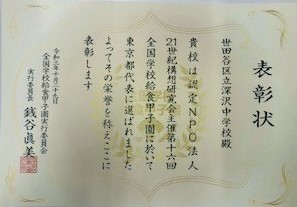 表彰状
世田谷区立深沢中学校殿
貴校は認定NPO法人
21世紀構想研究会主催第十六回
全国学校給食甲子園に於いて
東京都代表に選ばれました
よってその栄誉を称えここに
表彰します
令和三年十月二十六日
全国学校給食甲子園実行委員会
実行委員長 銭谷眞美